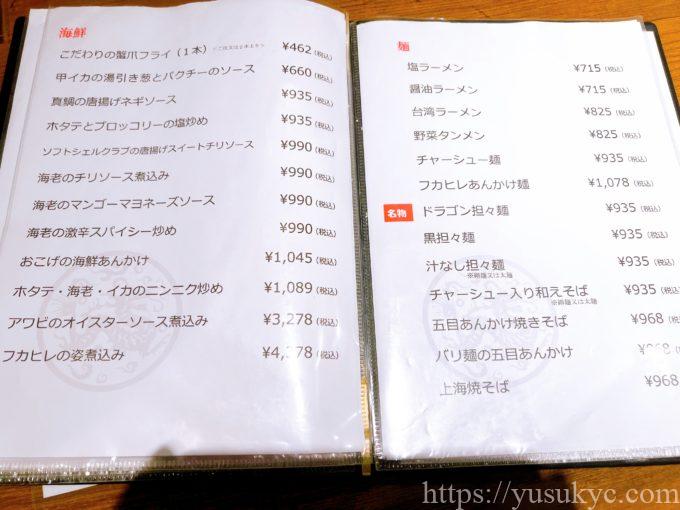 海鮮
こだわりの蟹爪フライ（1本） ¥462(税込)
甲イカの湯引き葱とパクチーのソース ¥660(税込)
真鯛の唐揚げネギソース ¥935(税込)
ホタテとブロッコリーの塩炒め ¥935(税込)
ソフトシェルクラブの唐揚げスイートチリソース ¥990(税込)
海老のチリソース煮込み ¥990(税込)
海老のマンゴーマヨネーズソース ¥990(税込)
海老の激辛スパイシー炒め ¥990(税込)
おこげの海鮮あんかけ ¥1,045(税込)
ホタテ・海老・イカのニンニク炒め ¥1,089(税込)
アワビのオイスターソース煮込み ¥3,278(税込)
フカヒレの姿煮込み (税込)
麺
塩ラーメン ¥715(税込)
醤油ラーメン ¥715(税込)
台湾ラーメン ¥825(税込)
野菜タンメン ¥825(税込)
チャーシュー麺 ¥935(税込)
フカヒレあんかけ麺 ¥1,078(税込)
名物 ドラゴン担々麺 ¥935(税込)
黒担々麺 ¥935(税込)
汁なし担々麺 ¥935(税込)
※細麺又は太麺
チャーシュー入り和えそば ¥935(税込)
※細麺又は太麺
五目あんかけ焼きそば ¥968(税込)
バリ麺の五目あんかけ ¥968(税込)
上海焼そば ¥968(税込)
https://yusukyc.com